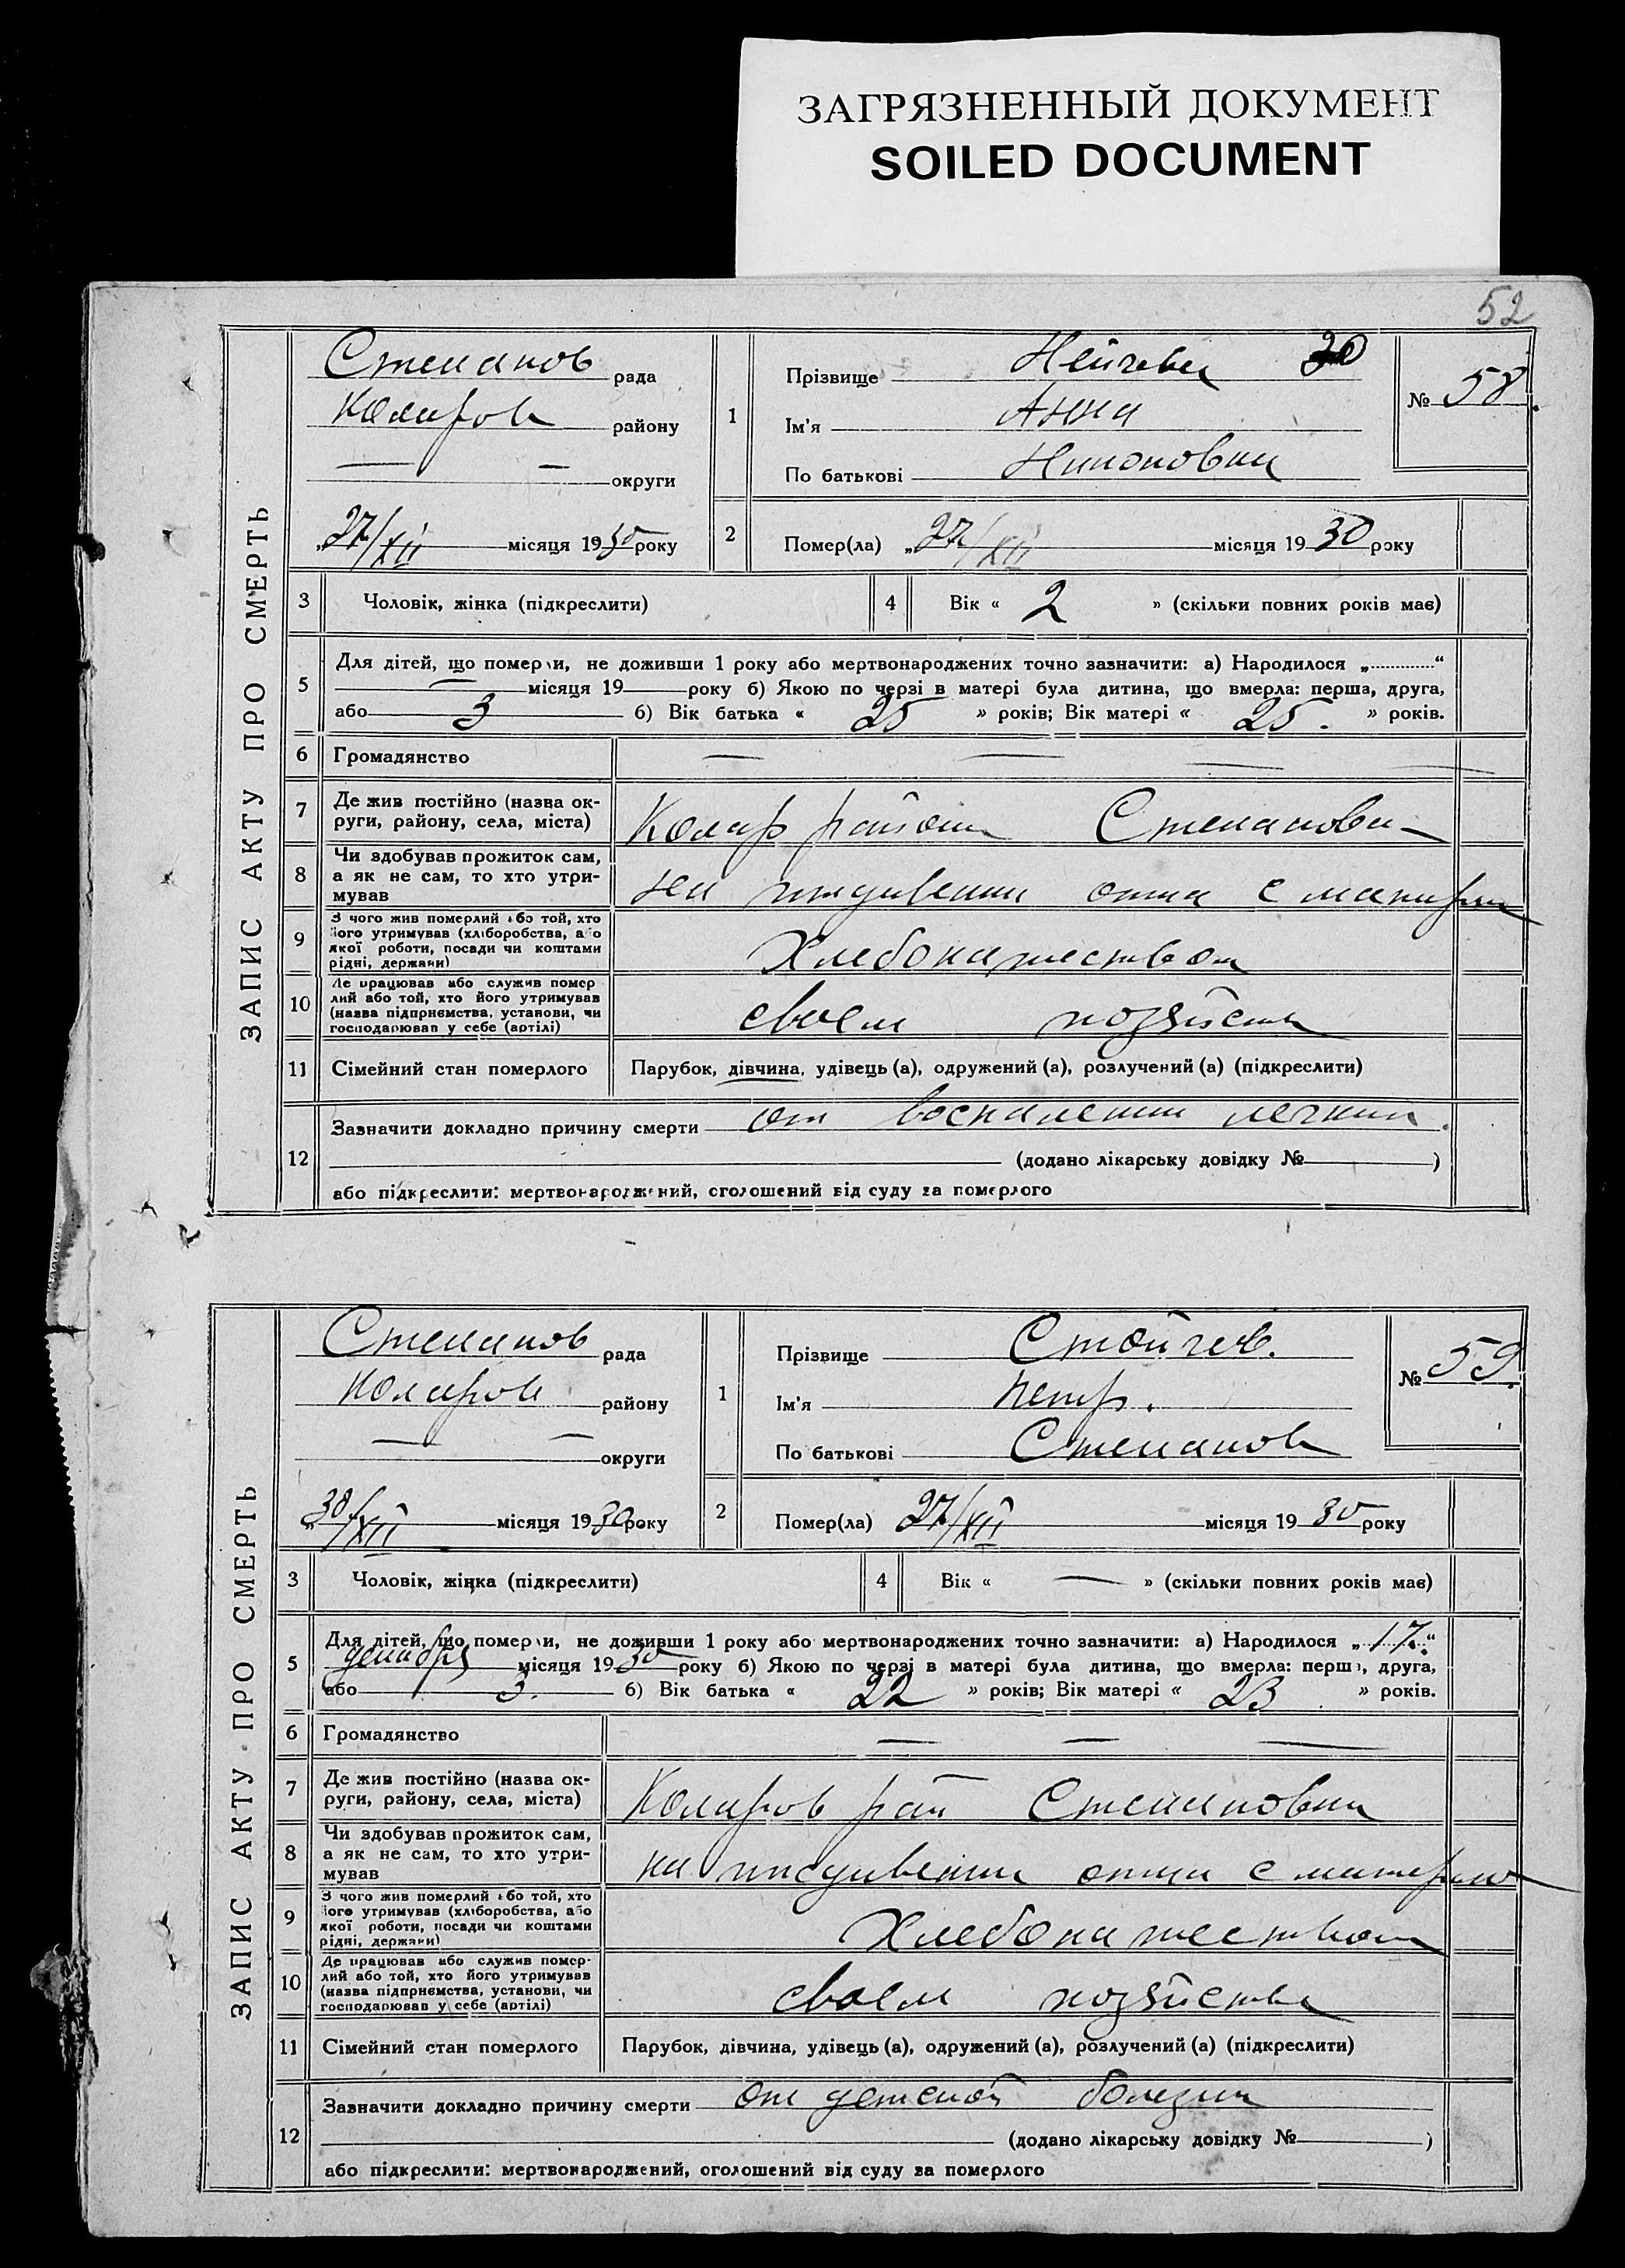 ЗАГРЯЗНЕННЫЙ ДОКУМЕНТ
SOILED DOCUMENT
52
ЗАПИС АКТУ ПРО СМЕРТЬ
Степанов рада
Коларов району
— — округи
„27/XII місяця 1930 року
1
Прізвище Нейчева 30
Ім'я Анна
По батькові
№ 58.
2 Помер(ла) „27/XII місяця 1930 року
3 Чоловік, жінка (підкреслити)
4 Вік « 2 » (скільки повних років має)
5 Для дітей, що померли, не доживши 1 року або мертвонароджених точно зазначити: а) Народилося „ “
— місяця 19 року б) Якою по черзі в матері була дитина, що вмерла: перша, друга,
або 3 б) Вік батька « 25 » років; Вік матері « 25. » років.
6 Громадянство — — — —
7 Де жив постійно (назва ок-
руги, району, села, міста)
Колар район Степановка
8 Чи здобував прожиток сам,
а як не сам, то хто утри-
мував
на иждивении отца с матерью
9 З чого жив померлий або той, хто
його утримував (хліборобства, або
якої роботи, посади чи коштами
рідні, держави)
Хлебопашеством
10 Де працював або служив помер
лий або той, хто його утримував
(назва підприємства, установи, чи
господарював у себе (артілі)
своем хозяйстве
11 Сімейний стан померлого Парубок, дівчина, удівець (а), одружений (а), розлучений (а) (підкреслити)
12 Зазначити докладно причину смерти от воспаления легких.
(додано лікарську довідку № )
або підкреслити: мертвонароджений, оголошений від суду за померлого
ЗАПИС АКТУ ПРО СМЕРТЬ
Степанов рада
Коларов району
— — округи
„30/XII місяця 1930 року
1
Прізвище Стойчев.
Ім'я Петр.
По батькові Степанов
№ 59.
2 Помер(ла) 27/XII місяця 1930 року
3 Чоловік, жінка (підкреслити)
4 Вік « — » (скільки повних років має)
5 Для дітей, що померли, не доживши 1 року або мертвонароджених точно зазначити: а) Народилося „17.“
декабря місяця 1930 року б) Якою по черзі в матері була дитина, що вмерла: перша, друга,
або 3. б) Вік батька « 22 » років; Вік матері « 23 » років.
6 Громадянство — — —
7 Де жив постійно (назва ок-
руги, району, села, міста)
Коларов рай Степановка
8 Чи здобував прожиток сам,
а як не сам, то хто утри-
мував
на иждивении отца с матерью
9 З чого жив померлий або той, хто
його утримував (хліборобства, або
якої роботи, посади чи коштами
рідні, держави)
Хлебопашеством
10 Де працював або служив помер-
лий або той, хто його утримував
(назва підприємства, установи, чи
господарював у себе (артілі)
своем хозяйстве
11 Сімейний стан померлого Парубок, дівчина, удівець (а), одружений (а), розлучений (а) (підкреслити)
12 Зазначити докладно причину смерти от детской болезни
(додано лікарську довідку № )
або підкреслити: мертвонароджений, оголошений від суду за померлого